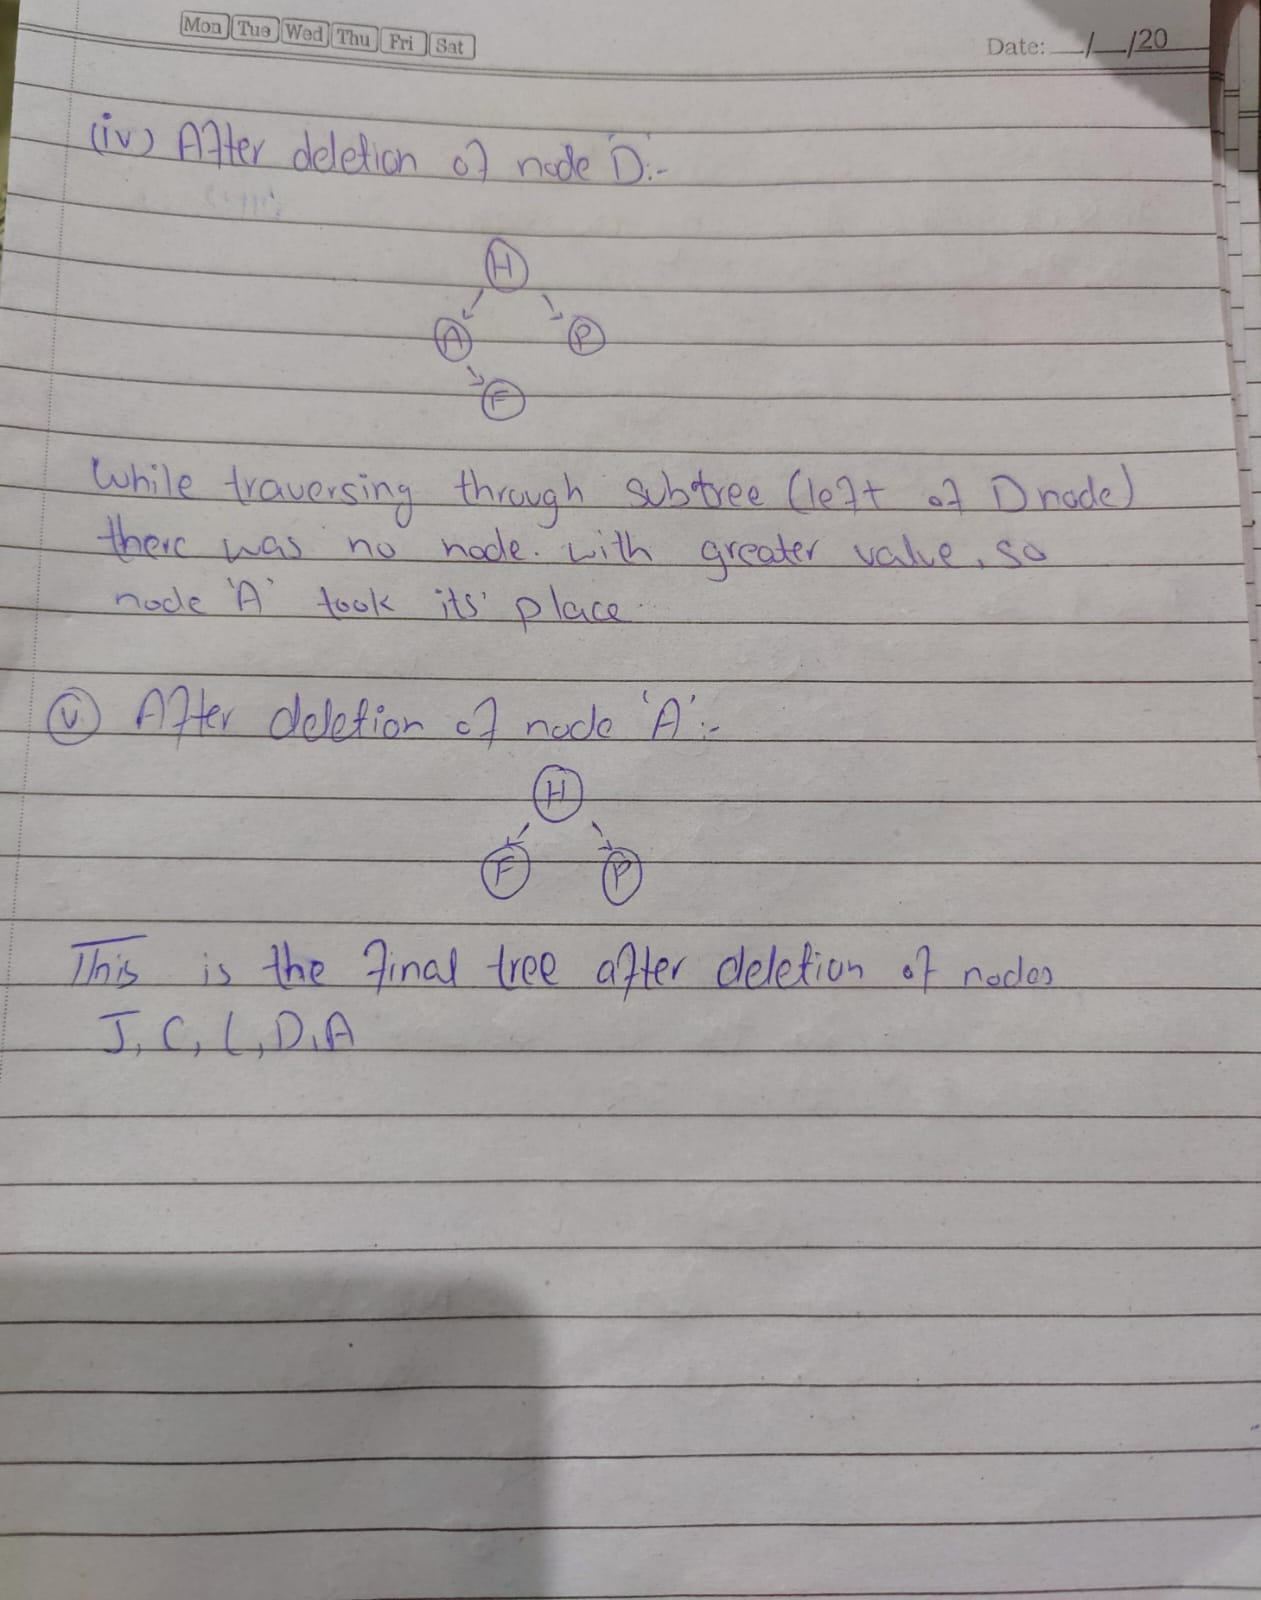 Mon Tue Wed Thu Fri Sat
Date: __/__/20
(iv) After deletion of node 'D':-
H
A P
F
While traversing through subtree (left of D node)
there was no node. with greater value, so
node 'A' took its' place
(v) After deletion of node 'A':-
H
F P
This is the final tree after deletion of nodes
J, C, L, D, A